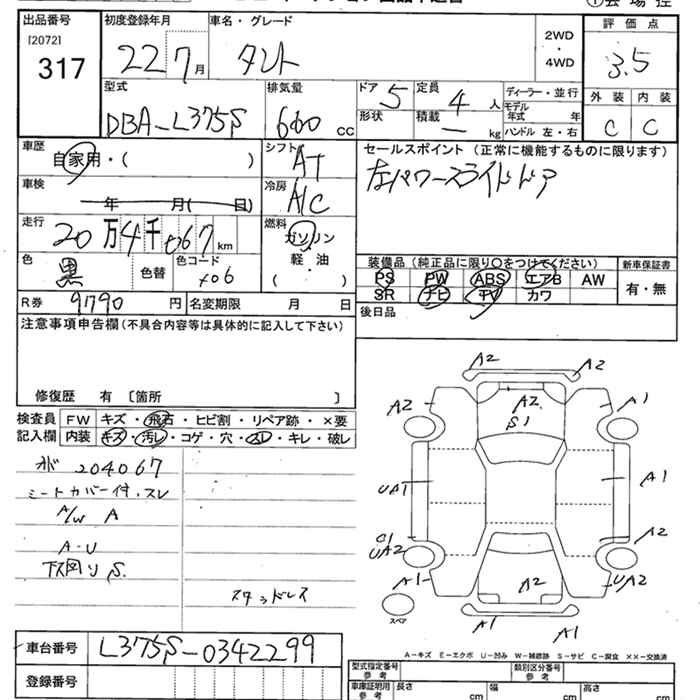 出品番号
[2072]
317
初度登録年月
22 7月
車名・グレード
タント
2WD
・
4WD
評価点
3.5
外装 内装
C C
型式
DBA-L375S
排気量
660 CC
ドア 5
形状
定員 4人
積載 — kg
ディーラー・並行
モデル年式 年
ハンドル 左・右
車歴
自家用・( )
シフト
AT
セールスポイント（正常に機能するものに限ります）
左パワースライドドア
車検
年 月( 日)
冷房
A/C
走行
20万4千067km
燃料
ガソリン
軽・油
( )
色
黒
色替
色コード
X06
装備品（純正品に限り〇をつけてください）
新車保証書
PS PW ABS エアB AW
SR ナビ TV カワ
有・無
R券 9790円
名変期限 月 日
後日品
注意事項申告欄(不具合内容等は具体的に記入して下さい)
修復歴 有 〔箇所 〕
検査員
記入欄
FW キズ・飛石・ヒビ割・リペア跡・×要
内装 キズ・汚レ・コゲ・穴・スレ・キレ・破レ
204067
シートカバー付、スレ
A/W A
A・U
下廻りS
スタッドレス
A2 A2
A2 A2 A1
S1
UA1 A1
UA2 A2
A1 A2 UA2
A1 A1
スペア
A－キズ E－エクボ U－凹み W－補修跡 S－サビ C－腐食 ××－交換済
車台番号 L375S-0342299
登録番号
型式指定番号
参考
類別区分番号
参考
車庫証明用
参考
長さ cm 幅 cm 高さ cm